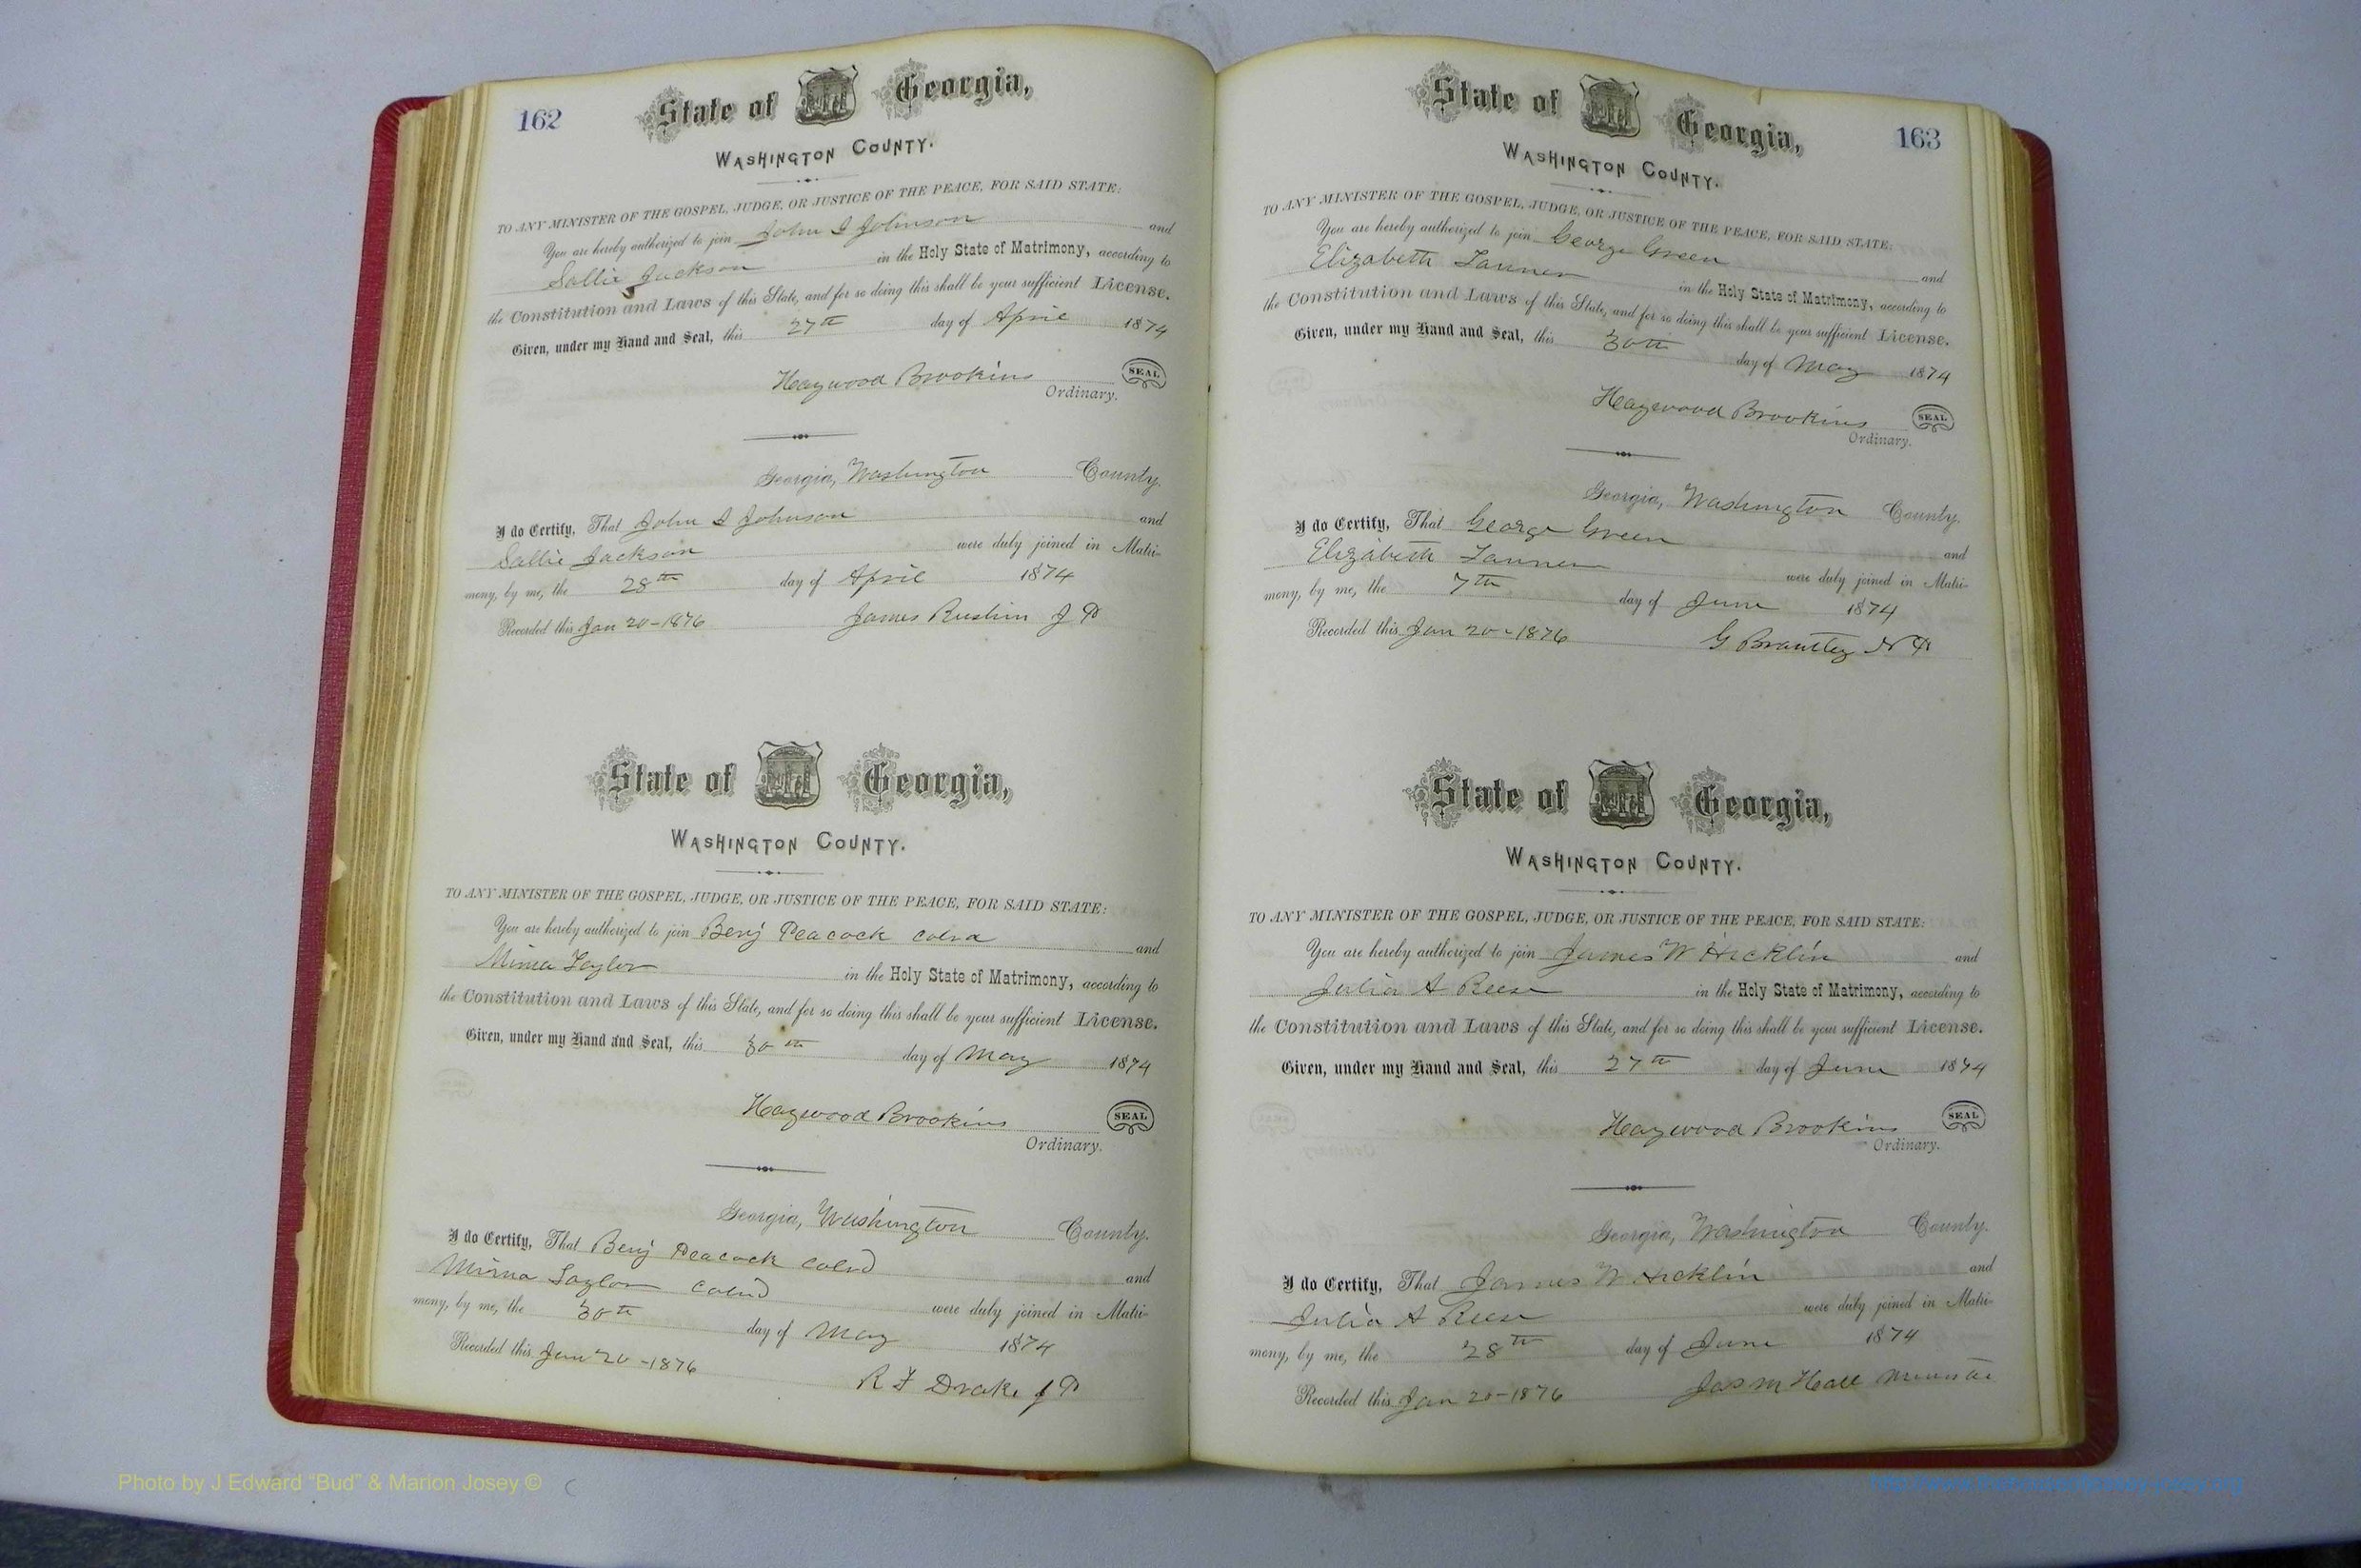 162
State of Georgia,
WASHINGTON COUNTY.
TO ANY MINISTER OF THE GOSPEL, JUDGE, OR JUSTICE OF THE PEACE, FOR SAID STATE:
You are hereby authorized to join John I Johnson and
Sallie Jackson in the Holy State of Matrimony, according to
the Constitution and Laws of this State, and for so doing this shall be your sufficient License.
Given, under my Hand and Seal, this 27th day of April 1874
Haywood Brookins SEAL
Ordinary.
Georgia, Washington County.
I do Certify, That John I Johnson and
Sallie Jackson were duly joined in Matri-
mony, by me, the 28th day of April 1874
Recorded this Jan 20-1876 James Rushin J P
State of Georgia,
WASHINGTON COUNTY.
TO ANY MINISTER OF THE GOSPEL, JUDGE, OR JUSTICE OF THE PEACE, FOR SAID STATE:
You are hereby authorized to join Benj Peacock cold and
Mima Taylor in the Holy State of Matrimony, according to
the Constitution and Laws of this State, and for so doing this shall be your sufficient License.
Given, under my Hand and Seal, this 30th day of May 1874
Haywood Brookins SEAL
Ordinary.
Georgia, Washington County.
I do Certify, That Benj Peacock cold and
Mima Taylor cold were duly joined in Matri-
mony, by me, the 30th day of May 1874
Recorded this Jan 20-1876 R F Drake J P
163
State of Georgia,
WASHINGTON COUNTY.
TO ANY MINISTER OF THE GOSPEL, JUDGE, OR JUSTICE OF THE PEACE, FOR SAID STATE:
You are hereby authorized to join George Green and
Elizabeth Tanner in the Holy State of Matrimony, according to
the Constitution and Laws of this State, and for so doing this shall be your sufficient License.
Given, under my Hand and Seal, this 30th day of May 1874
Haywood Brookins SEAL
Ordinary.
Georgia, Washington County.
I do Certify, That George Green and
Elizabeth Tanner were duly joined in Matri-
mony, by me, the 7th day of June 1874
Recorded this Jan 20-1876 G Brantley N P
State of Georgia,
WASHINGTON COUNTY.
TO ANY MINISTER OF THE GOSPEL, JUDGE, OR JUSTICE OF THE PEACE, FOR SAID STATE:
You are hereby authorized to join James W Hicklin and
Julia A Reese in the Holy State of Matrimony, according to
the Constitution and Laws of this State, and for so doing this shall be your sufficient License.
Given, under my Hand and Seal, this 27th day of June 1874
Haywood Brookins SEAL
Ordinary.
Georgia, Washington County.
I do Certify, That James W Hicklin and
Julia A Reese were duly joined in Matri-
mony, by me, the 28th day of June 1874
Recorded this Jan 20-1876 Jas M Hall
Photo by J Edward “Bud” & Marion Josey ©